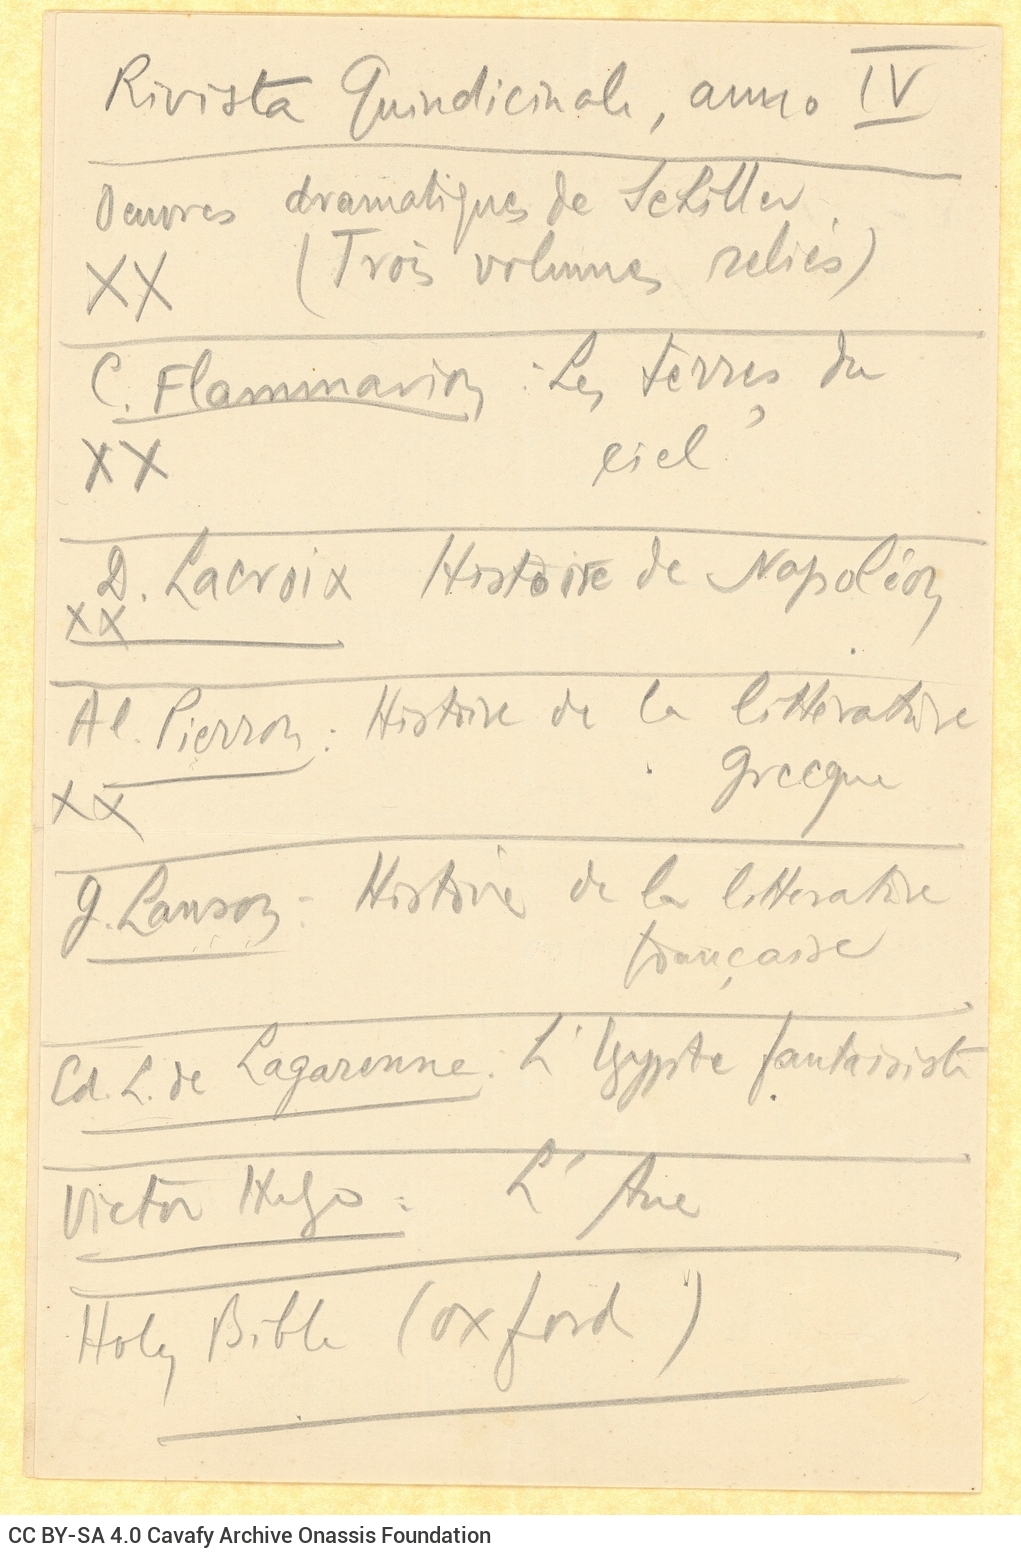 Rivista Quindicinale, anno IV
Oeuvres dramatiques de Schiller.
XX (Trois volumes reliés)
C. Flammarion : Les terres du
XX ciel
D. Lacroix Histoire de Napoléon
XX
Al. Pierron : Histoire de la littérature
grecque
XX
G. Lanson : Histoire de la littérature
française
Ed. L. de Lagarenne : L'Egypte fantaisiste
Victor Hugo : L'Ane
Holy Bible (Oxford)
CC BY-SA 4.0 Cavafy Archive Onassis Foundation